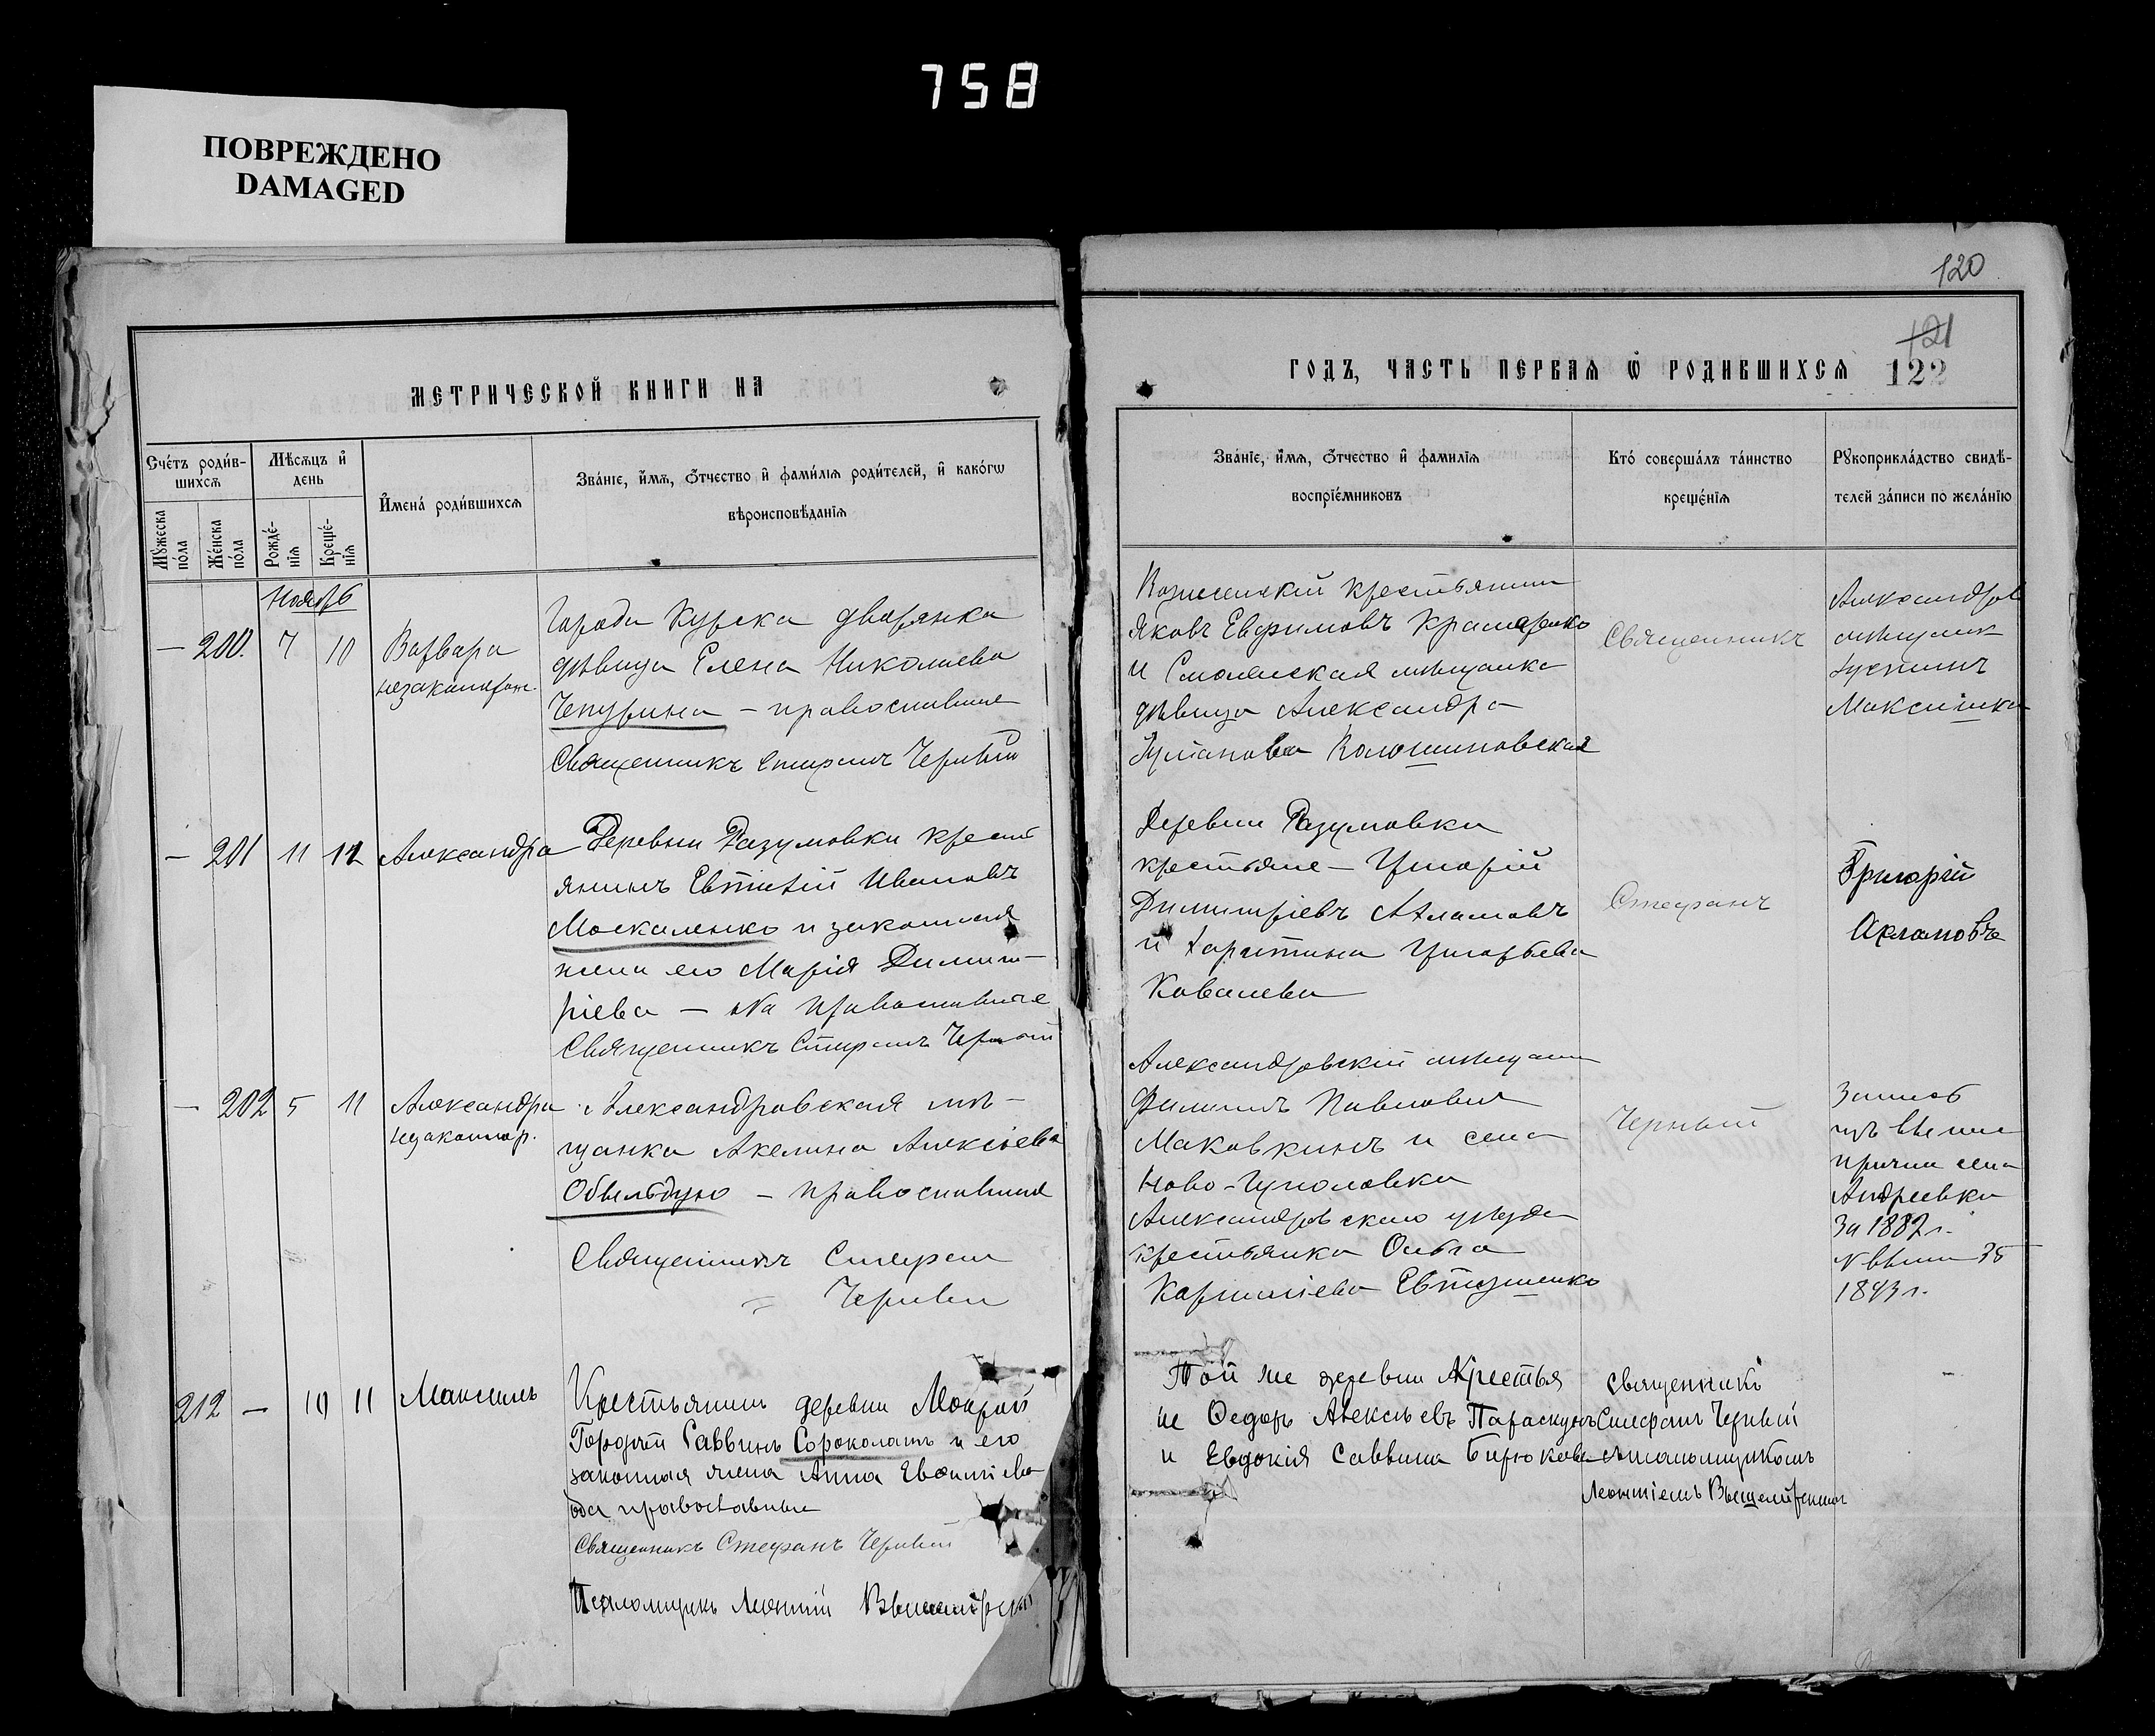 758
ПОВРЕЖДЕНО
DAMAGED
120
МЕТРИЧЕСКОЙ КНИГИ НА
Сче́тъ роди́в-
шихсѧ
Мꙋ́жеска
по́ла
Же́нска
по́ла
Мѣ́сѧцъ и҆
день
Рожде́-
нїѧ
Креще́-
нїѧ
И҆мена́ роди́вшихсѧ
Зва́нїе, и҆́мѧ, ѻ҆́тчество и҆ фами́лїѧ роди́телей, и҆ како́гѡ
вѣроисповѣ́данїѧ
Ноябрь
— 200. 7 10
Варвара
незаконнорож.
Города Курска дворянка
дѣвица Елена Николаева
Чепурина – православная
Священникъ Стефанъ Черный
— 201 11 12
Александра
Деревни Разумовки крест
янинъ Евтихій Ивановъ
Москаленко и законная
жена его Марія Димит–
ріева — оба православные
Священникъ Стефанъ Черный
— 202 5 11
Александра
незаконнор.
Александровская мѣ–
щанка Акелина Алексѣева
– православная
Священникъ Стефан
Черный
212 — 10 11
Максимъ
Крестьянинъ деревни Мокрой
Саввинъ Сороколатъ и его
законная жена Анна
оба православные
Священникъ Стефанъ Черный
Псаломщикъ Леонтій
121
ГОДЪ, ЧАСТЬ ПЕРВАѦ Ѿ РОДИВШИХСѦ 122
Зва́нїе, и҆́мѧ, ѻ҆́тчество и҆ фами́лїѧ
воспрїе́мниковъ
Кто́ соверша́лъ та́инство
креще́нїѧ
Рꙋкоприкла́дство свидѣ́-
телей за́писи по жела́нїю
крестьянин
Яковъ Евфимовъ
и Смоленская мѣщанка
дѣвица Александра
Священникъ
Александров
мѣщанин
Деревни Разумовки
крестьяне – Григорій
Димитріевъ Ахламовъ
и Харитина Григорьева
Ковалева
Стефанъ
Григорій
Ахламовъ
Александровскій мѣщанин
Филиппъ Павловъ
Маковкинъ и села
Ново-Гуполовка
Александровскаго уѣзда
крестьянка Ольга
Евтушенко
Черный
села
Андреевки
за 1882 г.
Той же деревни Крестья
не Ѳедоръ Алексѣевъ
и Евдокія Саввина Бирюкова
Священникъ
Стефанъ Черный
съ псаломщикомъ
Леонтіемъ